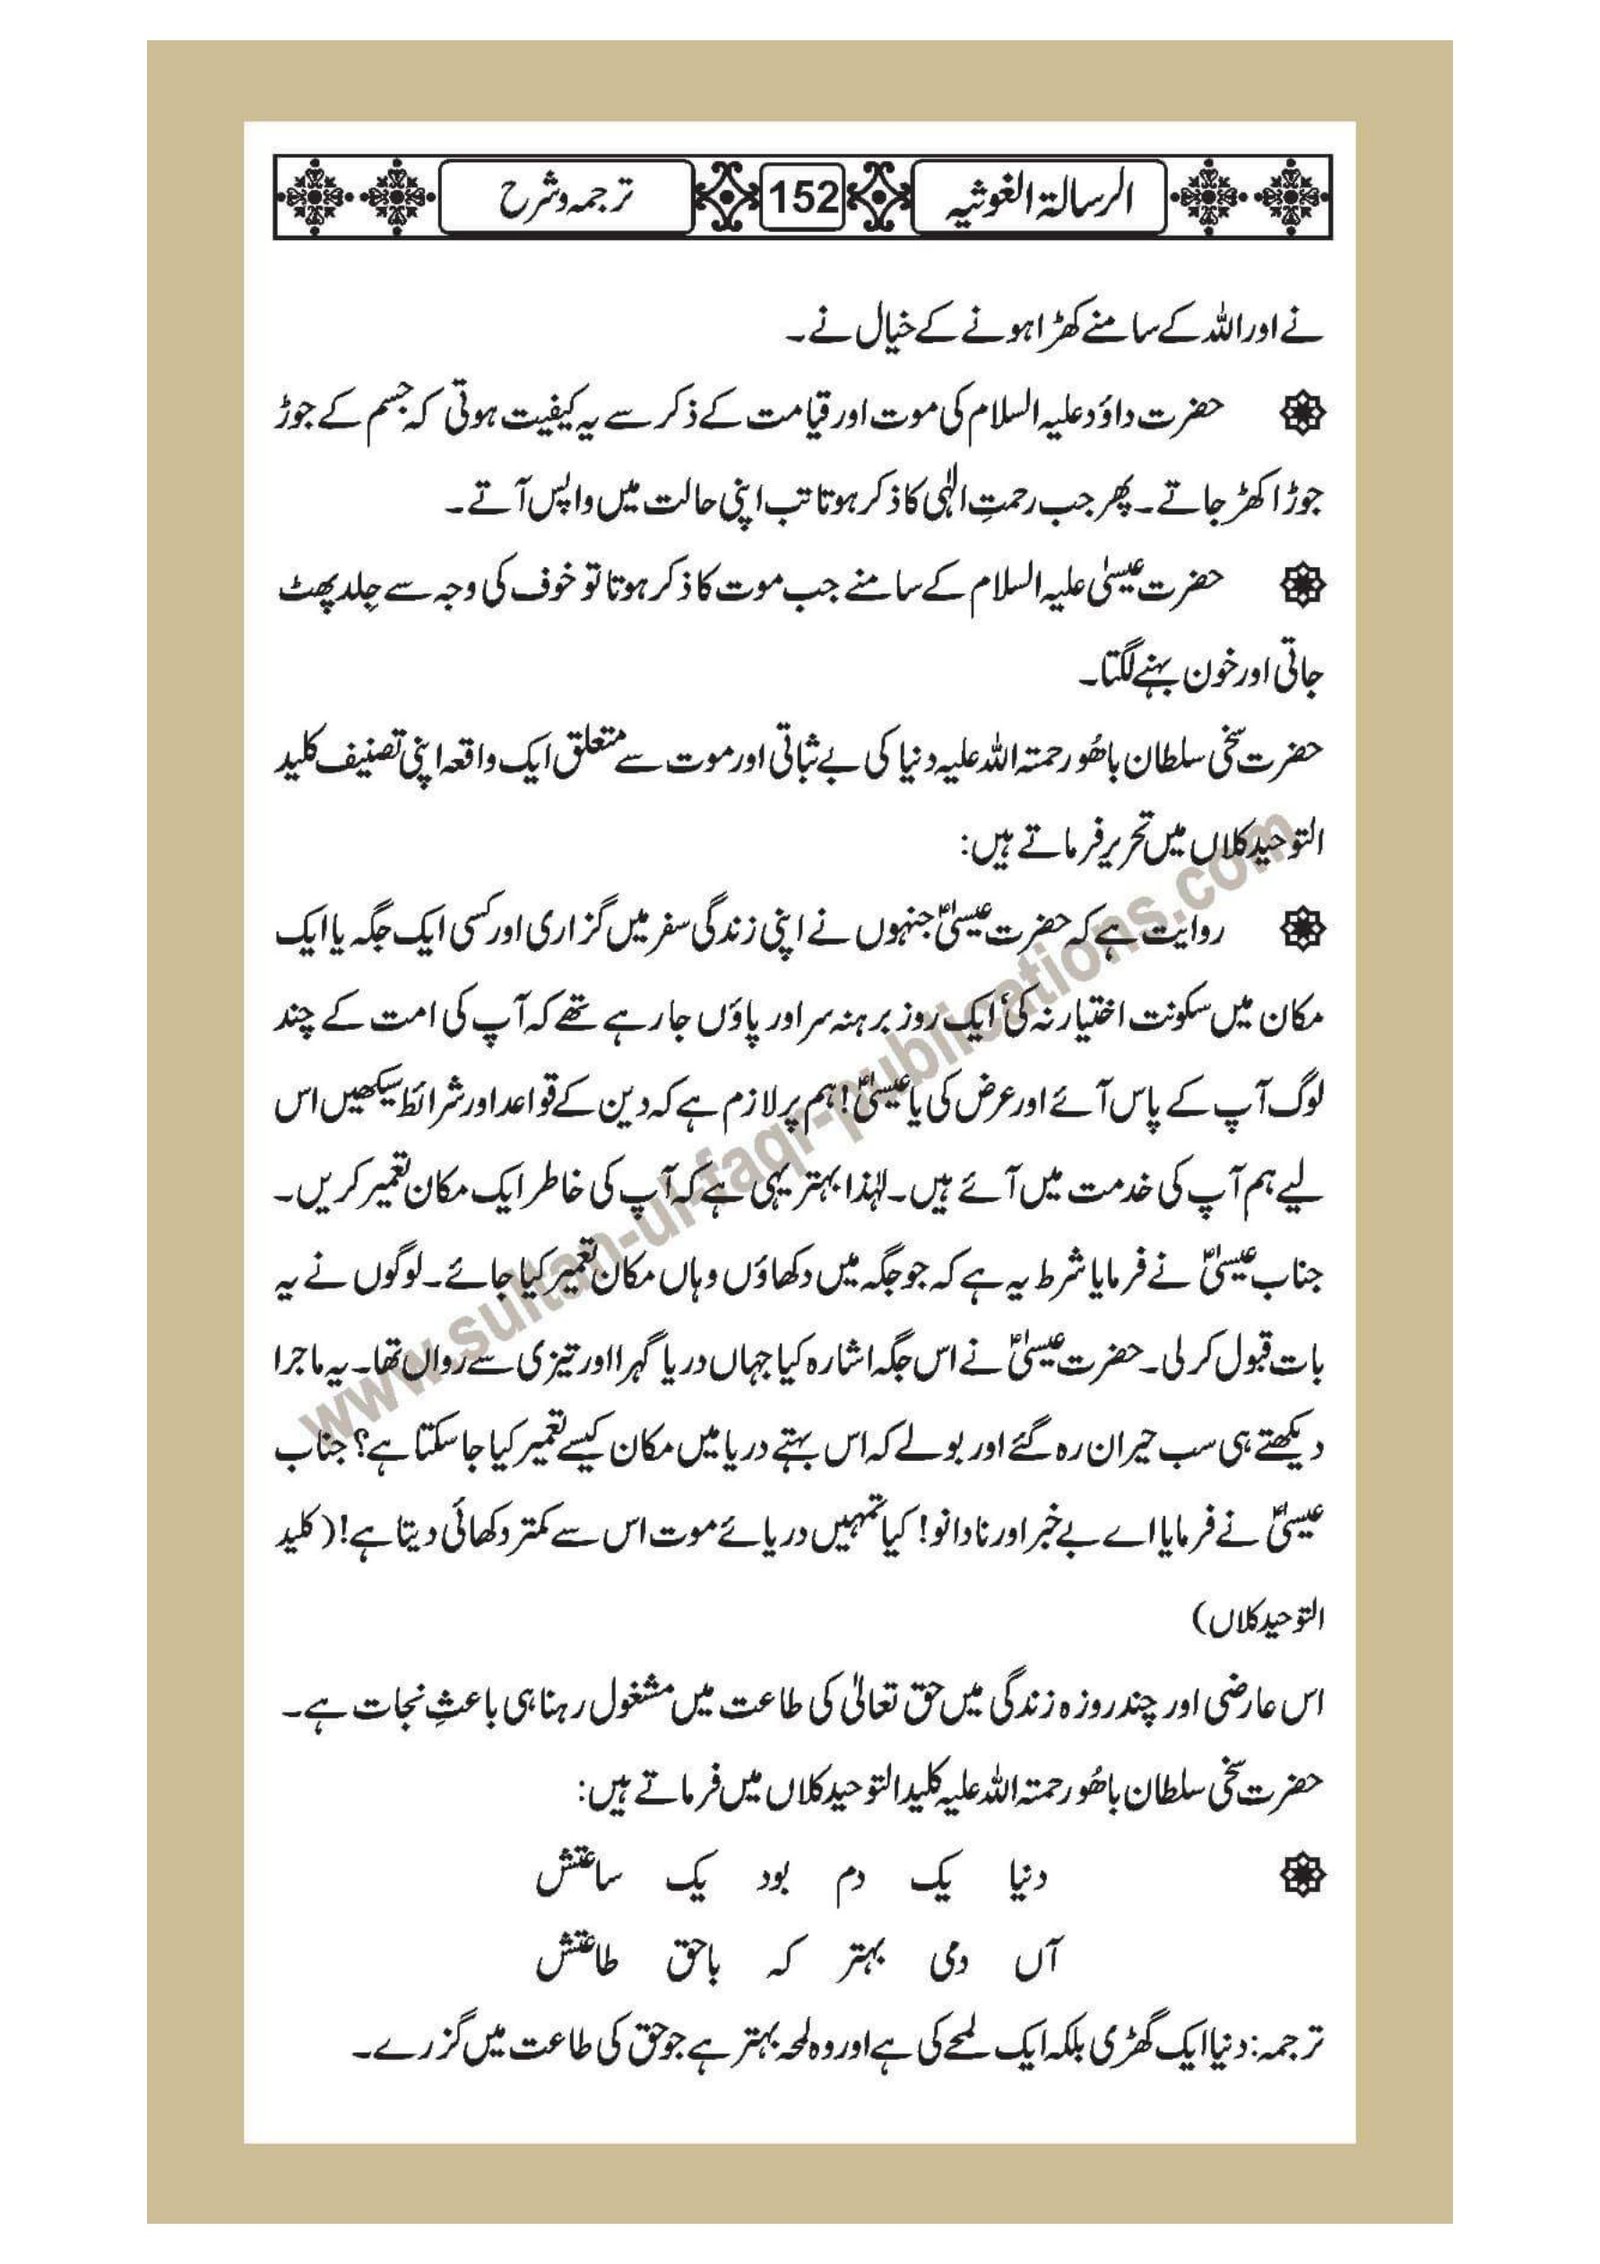 الرسالۃ الغوثیہ 152 ترجمہ و شرح
نے اور اللہ کے سامنے کھڑا ہونے کے خیال نے۔
حضرت داؤد علیہ السلام کی موت اور قیامت کے ذکر سے یہ کیفیت ہوتی کہ جسم کے جوڑ
جوڑ اکھڑ جاتے۔ پھر جب رحمتِ الٰہی کا ذکر ہوتا تب اپنی حالت میں واپس آتے۔
حضرت عیسیٰ علیہ السلام کے سامنے جب موت کا ذکر ہوتا تو خوف کی وجہ سے جِلد پھٹ
جاتی اور خون بہنے لگتا۔
حضرت سخی سلطان باھُو رحمتہ اللہ علیہ دنیا کی بے ثباتی اور موت سے متعلق ایک واقعہ اپنی تصنیف کلید
التوحید کلاں میں تحریر فرماتے ہیں:
روایت ہے کہ حضرت عیسیٰؑ جنہوں نے اپنی زندگی سفر میں گزاری اور کسی ایک جگہ یا ایک
مکان میں سکونت اختیار نہ کی‘ ایک روز برہنہ سر اور پاؤں جا رہے تھے کہ آپ کی امت کے چند
لوگ آپ کے پاس آئے اور عرض کی یا عیسیٰؑ! ہم پر لازم ہے کہ دین کے قواعد اور شرائط سیکھیں اس
لیے ہم آپ کی خدمت میں آئے ہیں۔ لہٰذا بہتر یہی ہے کہ آپ کی خاطر ایک مکان تعمیر کریں۔
جناب عیسیٰؑ نے فرمایا شرط یہ ہے کہ جو جگہ میں دکھاؤں وہاں مکان تعمیر کیا جائے۔ لوگوں نے یہ
بات قبول کر لی۔ حضرت عیسیٰؑ نے اس جگہ اشارہ کیا جہاں دریا گہرا اور تیزی سے رواں تھا۔ یہ ماجرا
دیکھتے ہی سب حیران رہ گئے اور بولے کہ اس بہتے دریا میں مکان کیسے تعمیر کیا جا سکتا ہے؟ جناب
عیسیٰؑ نے فرمایا اے بے خبر اور نادانو! کیا تمہیں دریائے موت اس سے کمتر دکھائی دیتا ہے! (کلید
التوحید کلاں)
اس عارضی اور چند روزہ زندگی میں حق تعالیٰ کی طاعت میں مشغول رہنا ہی باعثِ نجات ہے۔
حضرت سخی سلطان باھُو رحمتہ اللہ علیہ کلید التوحید کلاں میں فرماتے ہیں:
دنیا یک دم بود یک ساعتش
آں دمی بہتر کہ باحق طاعتش
ترجمہ: دنیا ایک گھڑی بلکہ ایک لمحے کی ہے اور وہ لمحہ بہتر ہے جو حق کی طاعت میں گزرے۔
www.sultan-ul-faqr-publications.com